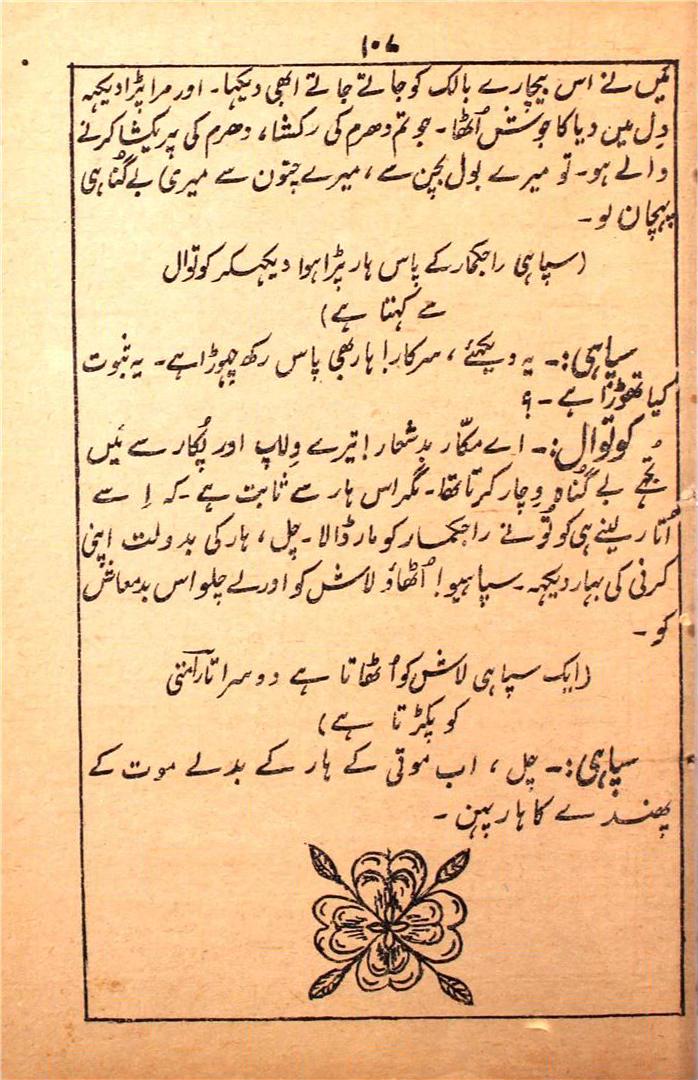 ۱۰۷
میں نے اس بیچارے بالک کو جاتے جاتے ابھی دیکہا۔ اور مرا پڑا دیکہہ
دِل مین دیا کا جوش اُٹھا۔ جو تم دھرم کی رکشا، دھرم کی پریکشا کرنے
والے ہو۔ تو میرے بول بچن سے، میرے چتون سے میری بے گناہی
پہچان لو۔
(سپاہی راجکمار کے پاس ہار پڑا ہوا دیکہکر کوتوال
سے کہتا ہے)
سپاہی:۔ یہ دیکہئے، سرکار! ہار بھی پاس رکھ چہوڑا ہے۔ یہ ثبوت
کیا تھوڑا ہے۔؟
کوتوال:۔ اے مکّار بدشعار! تیرے وِلاپ اور پُکار سے مَیں
تُجھے بے گُناہ وِچار کرتا تھا۔ مگر اس ہار سے ثابت ہے۔ کہ اِسے
اُتار لینے ہی کو تُونے راجکمار کو مار ڈالا۔ چل، ہار کی بدولت اپنی
کرنی کی بہار دیکہہ۔ سپاہیو! اُٹھاؤ لاش کو اور لے چلو اس بدمعاش
کو۔
(ایک سپاہی لاش کو اُٹھاتا ہے دوسرا تارامتی
کو پکڑتا ہے)
سپاہی:۔ چل، اب موتی کے ہار کے بدلے موت کے
پھندے کا ہار پہن۔